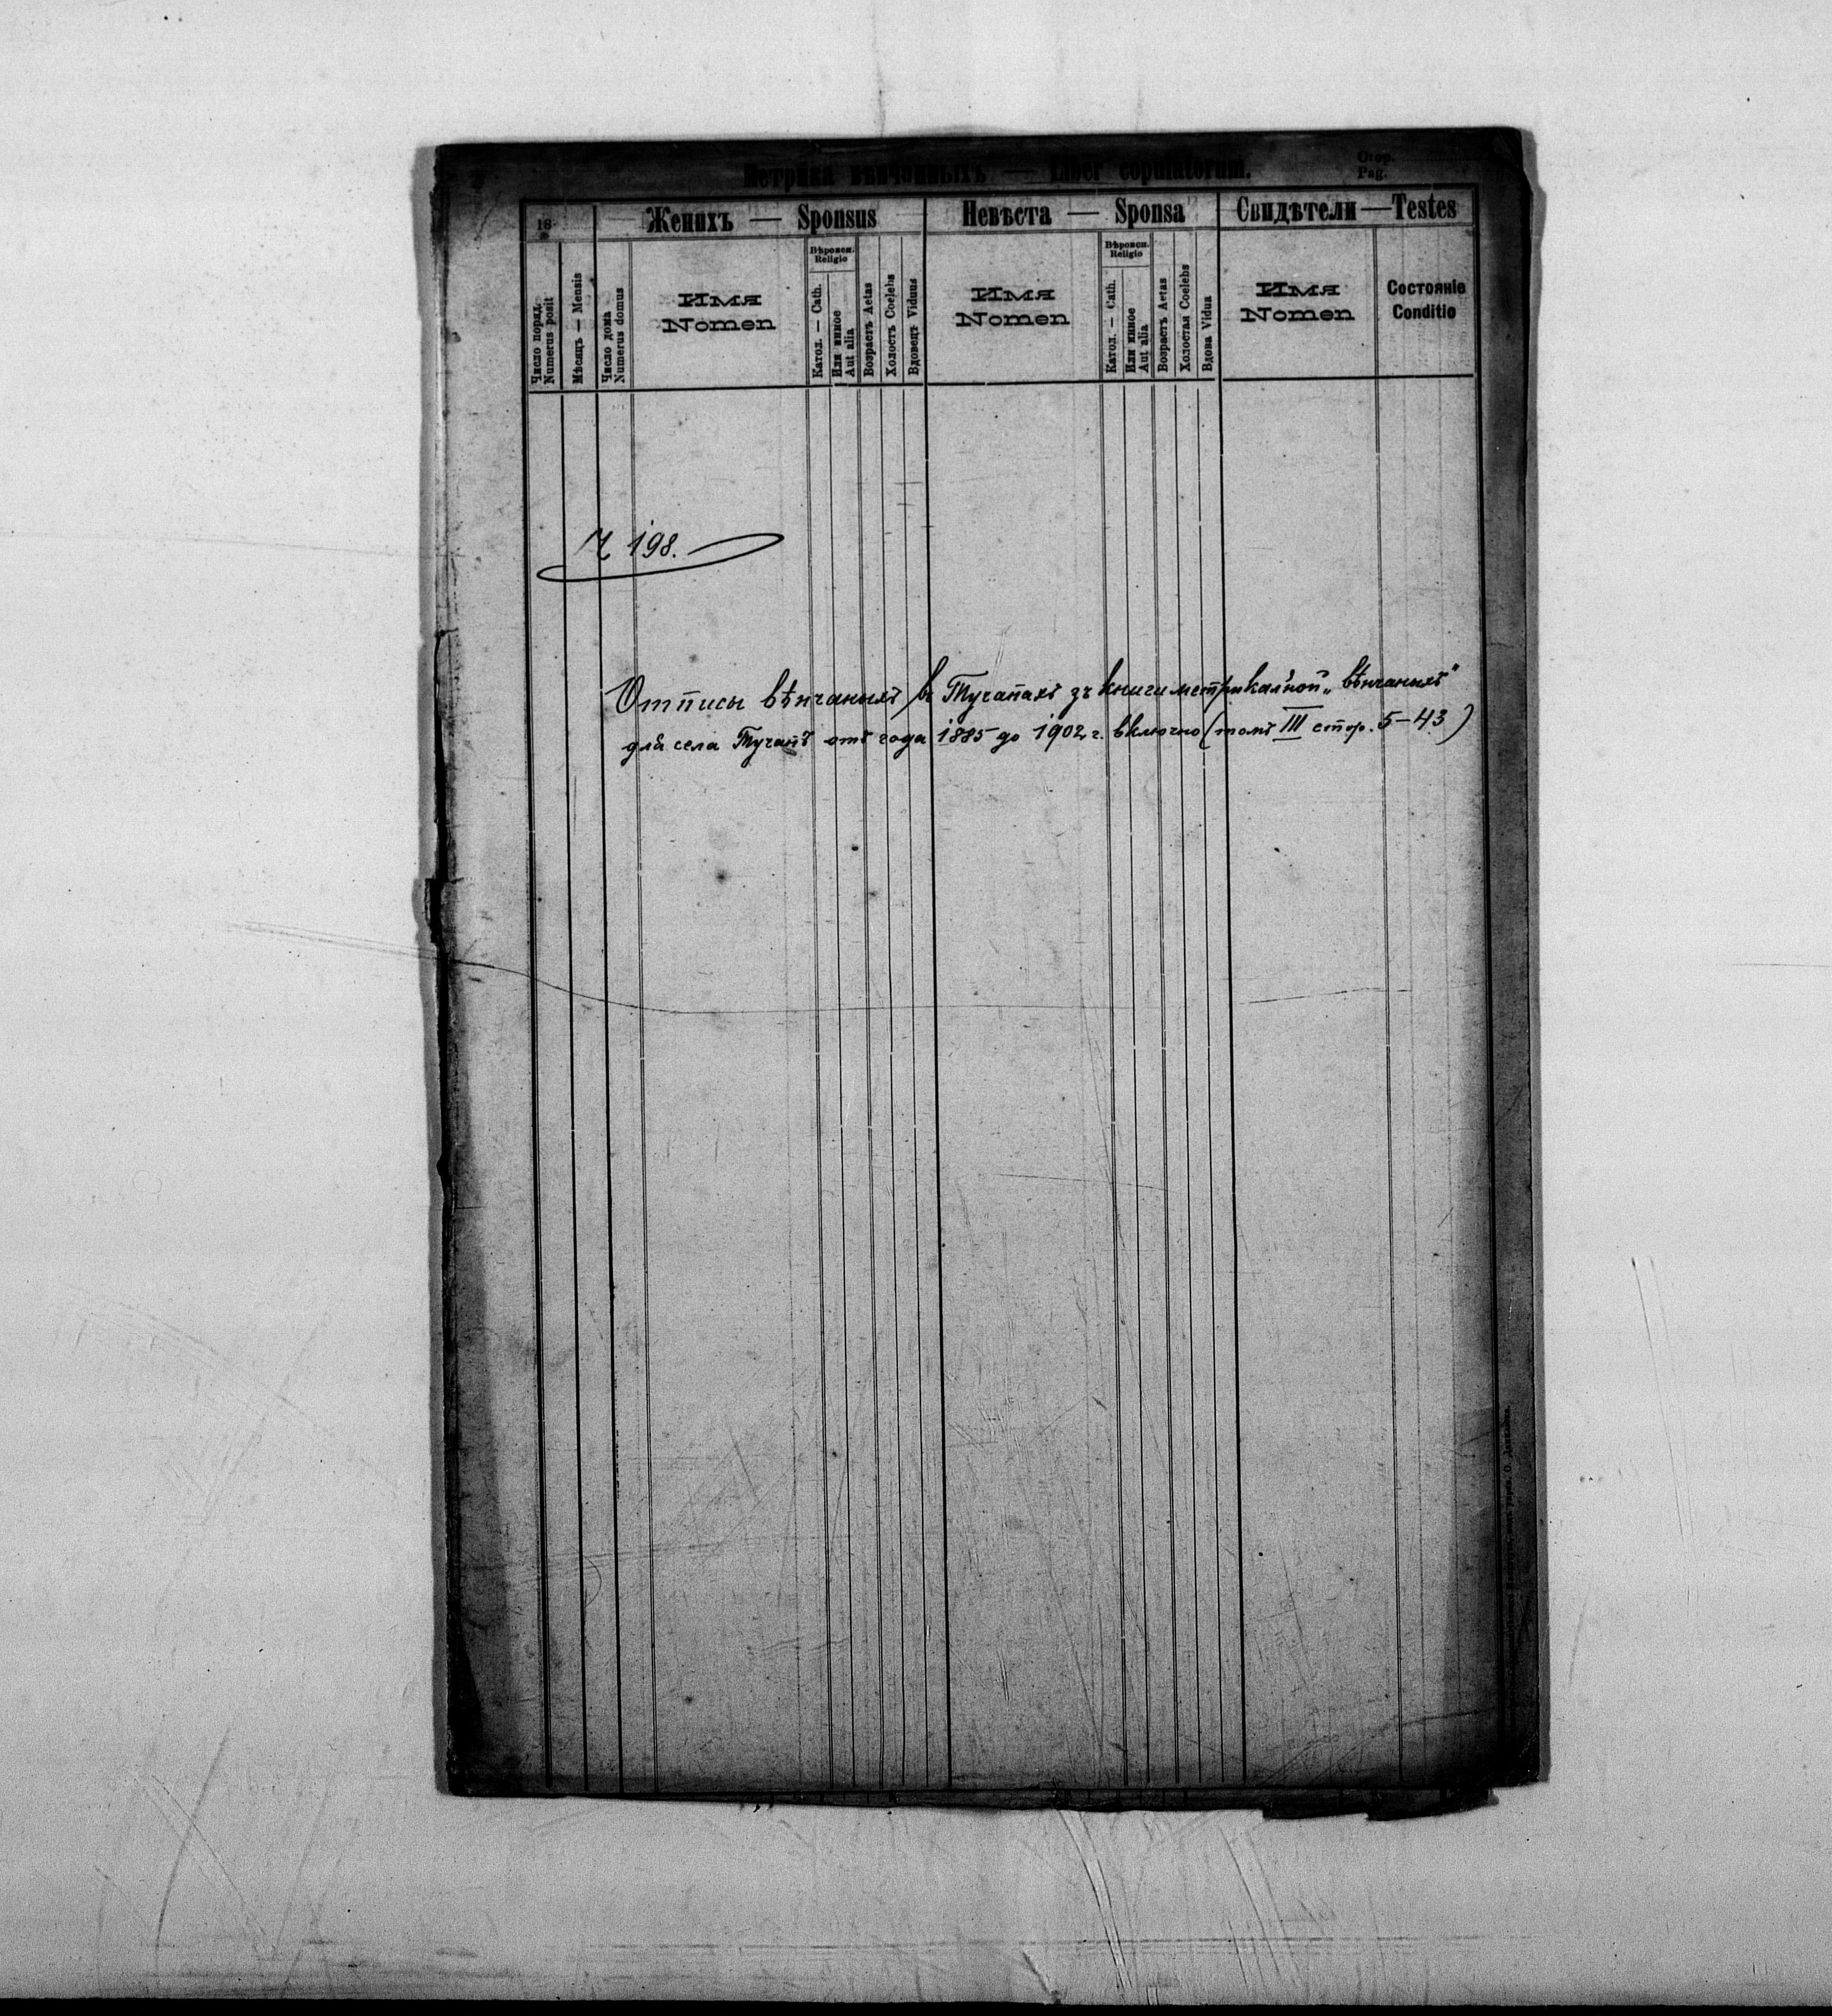 Метрика вѣнчанныхъ — Liber copulatorum.
Стор.
Pag.
18
Женихъ — Sponsus
Невѣста — Sponsa
Свидѣтели — Testes
Число поряд.
Numerus posit
Мѣсяцъ — Mensis
Число дома
Numerus domus
Имя
Nomen
Вѣроисп.
Religio
Катол. — Cath.
Или инное
Aut alia
Возрастъ Aetas
Холостъ Coelebs
Вдовецъ Viduus
Имя
Nomen
Вѣроисп.
Religio
Катол. — Cath.
Или инное
Aut alia
Возрастъ Aetas
Холостая Coelebs
Вдова Vidua
Имя
Nomen
Состояніе
Conditio
198.
Отписы вѣнчаныхъ в Тучапахъ зъ книги метрикальной „вѣнчаныхъ"
для села Тучапъ отъ года 1885 до 1902 г. включно (томъ III стор. 5–43)